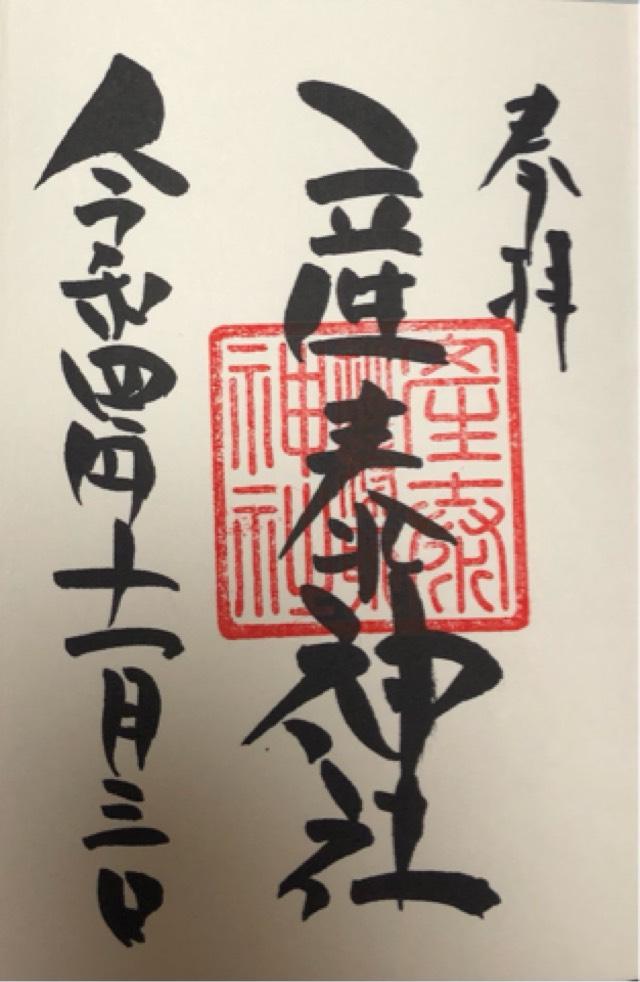 奉拝
産泰神社
産泰
神社
令和四年十一月三日